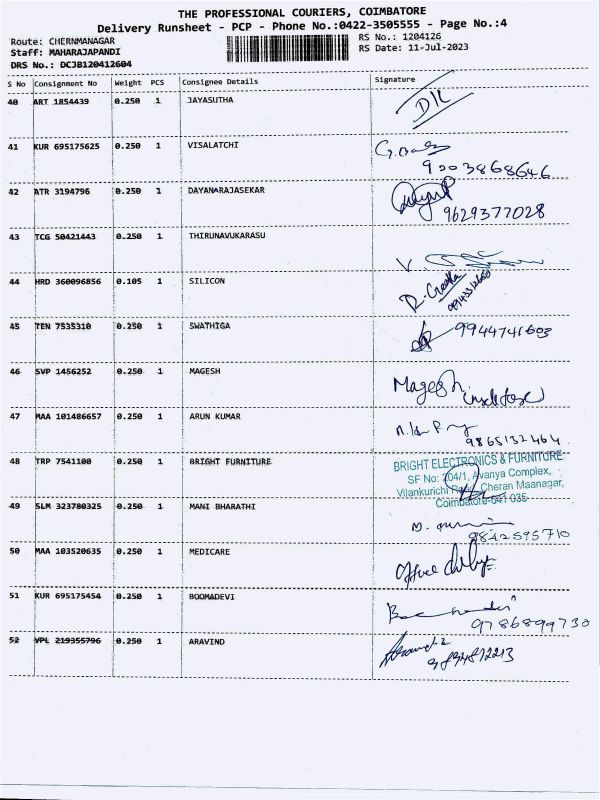 THE PROFESSIONAL COURIERS, COIMBATORE
Delivery Runsheet - PCP - Phone No.:0422-3505555 - Page No.:4
Route: CHERNMANAGAR RS No.: 1204126
Staff: MAHARAJAPANDI RS Date: 11-Jul-2023
DRS No.: DCJB120412604
S No Consignment No Weight PCS Consignee Details Signature
40 ART 1854439 0.250 1 JAYASUTHA DK
41 KUR 695175625 0.250 1 VISALATCHI
9003868646
42 ATR 3194796 0.250 1 DAYANARAJASEKAR
9629377028
43 TCG 50421443 0.250 1 THIRUNAVUKARASU
V.
44 HRD 360096856 0.105 1 SILICON R. Geetha
45 TEN 7535310 0.250 1 SWATHIGA 9944741603
46 SVP 1456252 0.250 1 MAGESH Magesh
47 MAA 101486657 0.250 1 ARUN KUMAR
9865132464
48 TRP 7541100 0.250 1 BRIGHT FURNITURE BRIGHT ELECTRONICS & FURNITURE
SF No: 204/1, Avanya Complex,
Vilankurichi Road, Cheran Maanagar,
Coimbatore-641 035
49 SLM 323780325 0.250 1 MANI BHARATHI
9842595710
50 MAA 103520635 0.250 1 MEDICARE
51 KUR 695175454 0.250 1 BOOMADEVI
9786899730
52 VPL 219355796 0.250 1 ARAVIND
9894872213